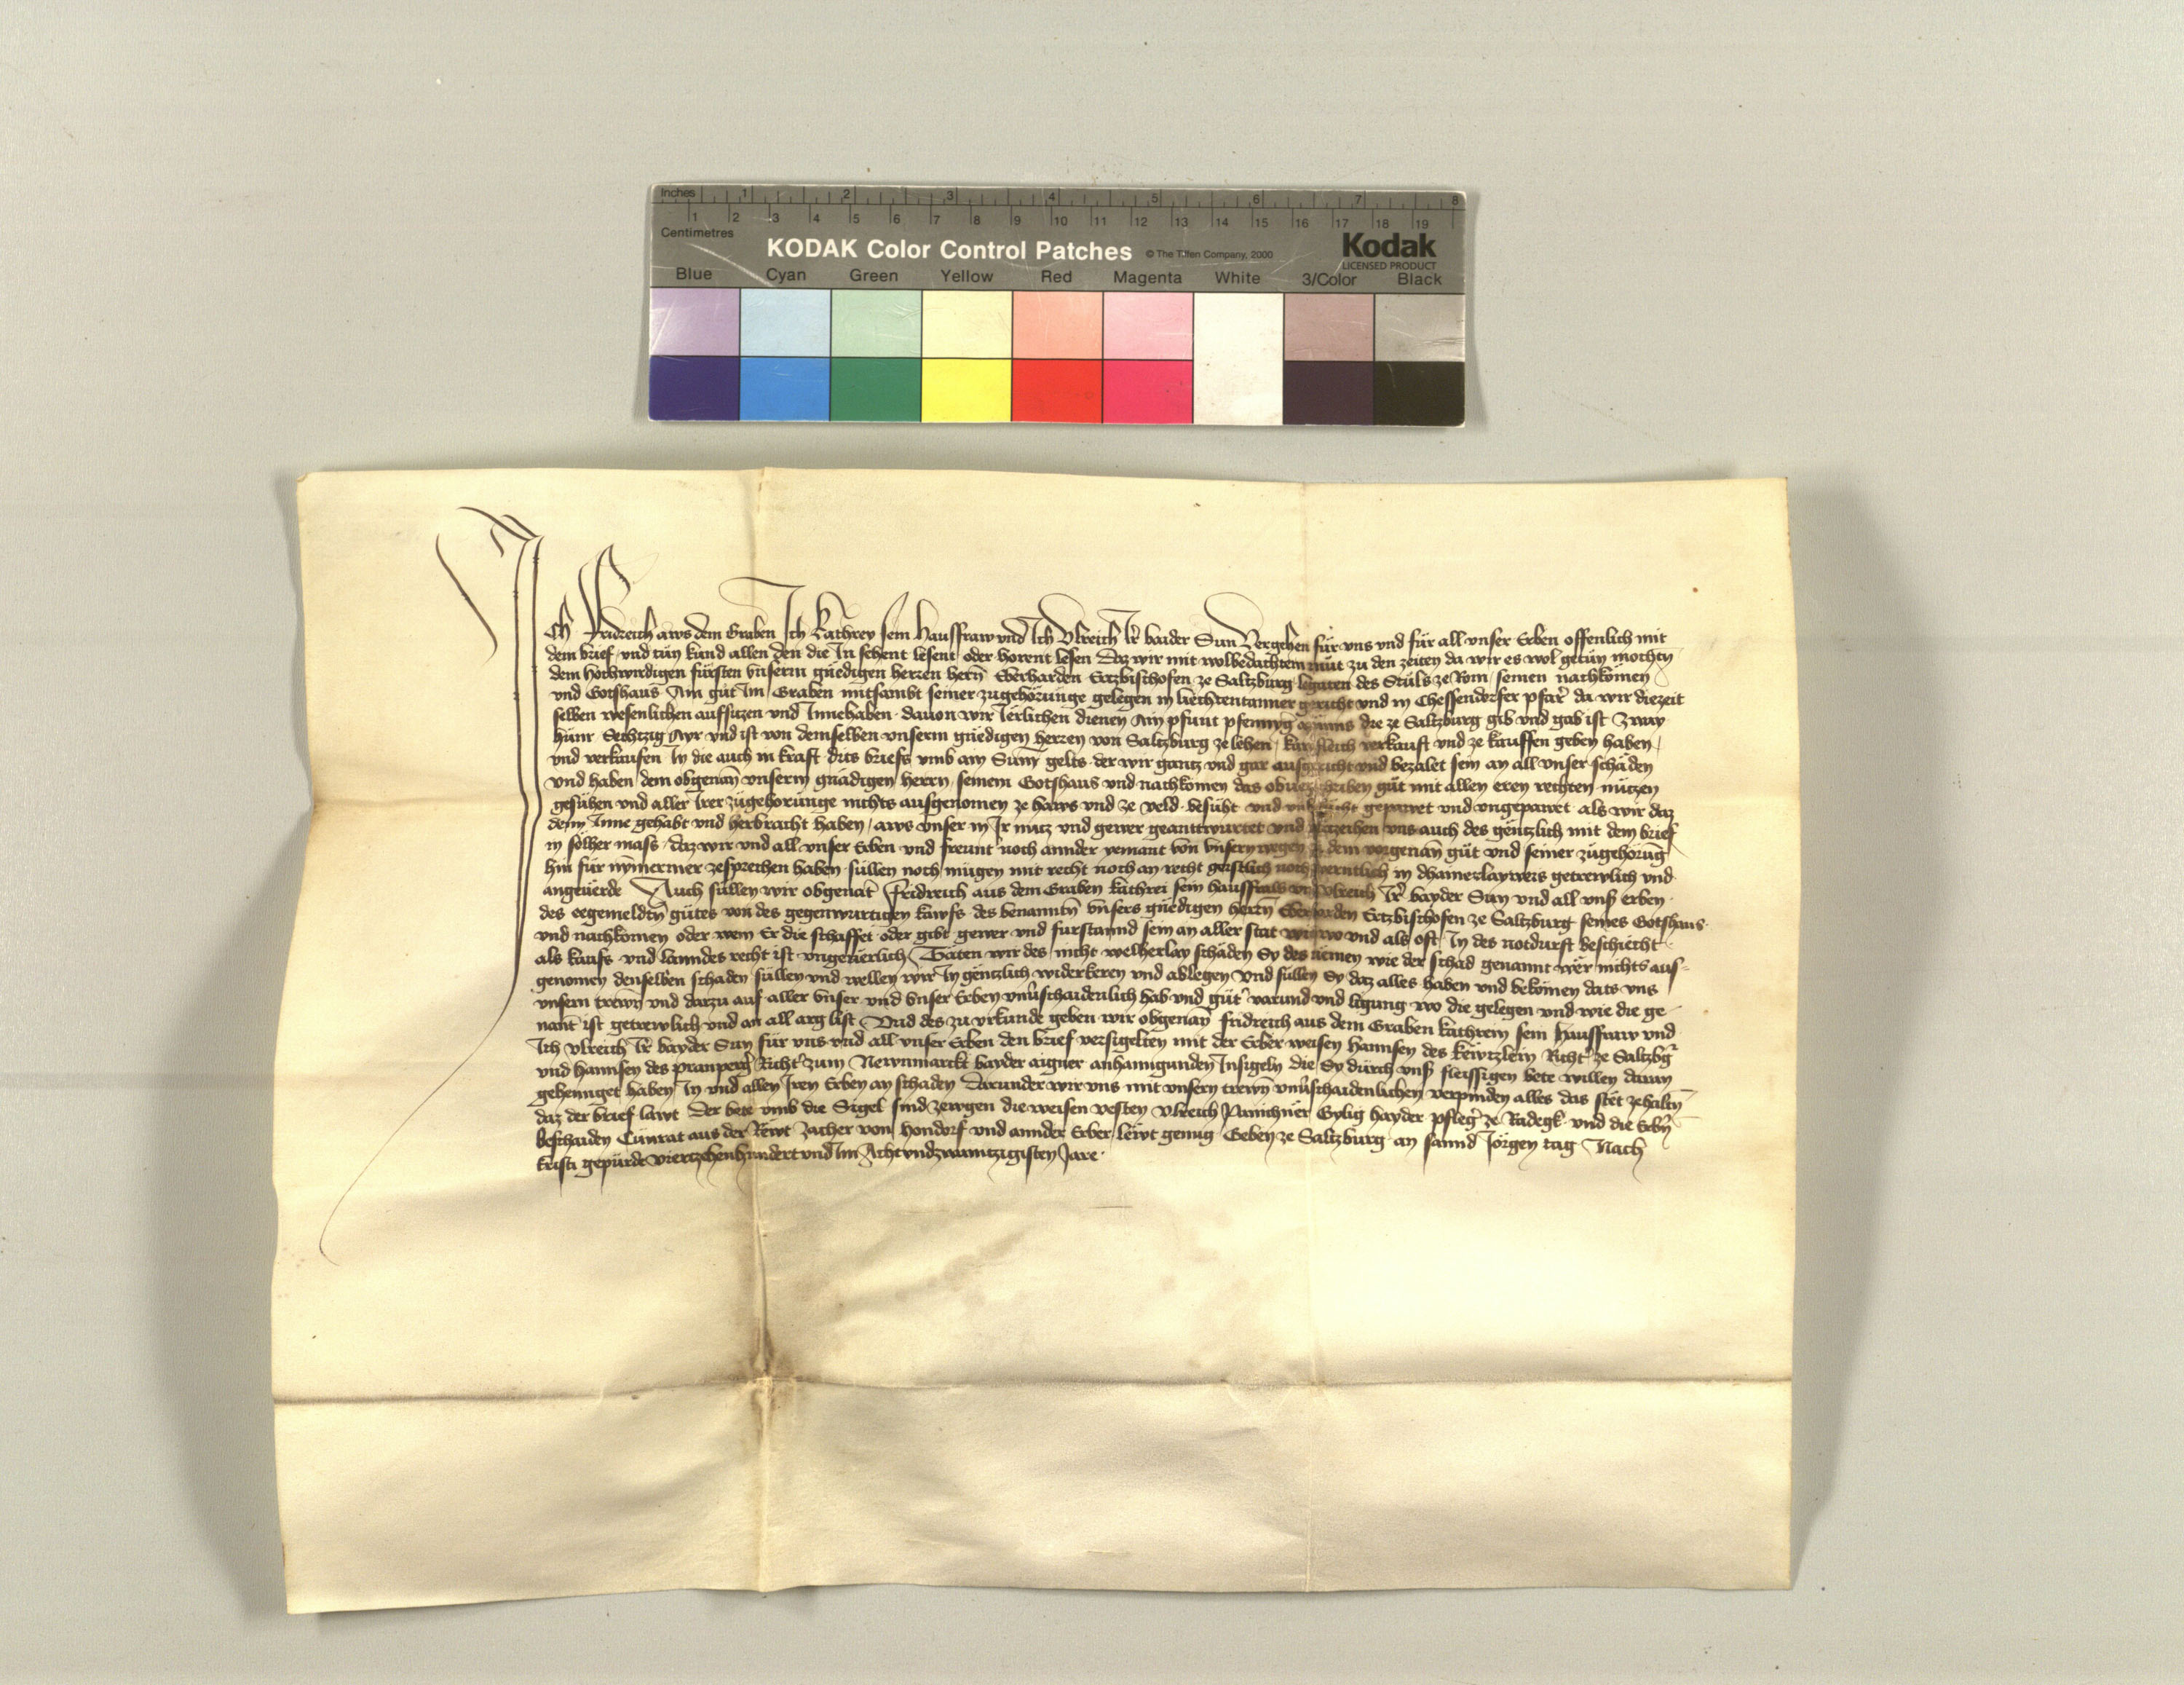 Inches 1 2 3 4 5 6 7 8
1 2 3 4 5 6 7 8 9 10 11 12 13 14 15 16 17 18 19
Centimetres
KODAK Color Control Patches © The Tiffen Company, 2000 Kodak
LICENSED PRODUCT
Blue Cyan Green Yellow Red Magenta White 3/Color Black
Ich Fridreich aws dem Graben Ich Kathrey sein Hausfraw und Ich Vlreich Ir baider Sun Vergehen für vns und für all vnser Erben offenlich mit
dem brief und tün kund allen den die In sehent lesent oder horent lesen Daz wir mit wolbedachtem müt zu den zeiten da wir es wol getün mochtn
dem hochwirdigen fürsten vnserm gnedigen herren hern Eberharden Ertzbischofen ze Saltzburg legaten des Stüls ze Rom seinen nachkömen
und Gotshaus Ain güt Im Graben mitsambt seiner zugehörünge gelegen in liechtentanner gericht und in Chessendorfer pfarr da wir diezeit
selben wesenlichen aufsitzen und Innehaben dauon wir Jerlichen dienen Ain pfunt pfennyg die ze Saltzburg gib und gab ist Zway
hünr Sechtzig Ayr und ist von demselben vnserm gnedigen herren von Saltzburg ze lehen verkauft und ze kauffen geben haben
und verkaufen In die auch in kraft dits briefs vmb ain Sum gelts der wir gantz und gar ausgericht und bezalet sein an all vnser schäden
und haben dem obgenan vnserm gnädigen herrn seinem Gotshaus und nachkömen das güt mit allen eren rechten nützen
gesüchen und aller Irer zügehorünge nichts ausgenomen ze haws und ze veld besücht und gepawet und vngepawet als wir daz
denn Inne gehabt und herbracht haben aws vnser in Ir nutz und gewer geantwurtet und verzeihen vns auch des gentzlich mit dem brief
in solher mass daz wir und all vnser Erben und freunt noch annder yemant von vnsern wegen dem vorgenan güt und seiner zügehörüng
hin für nymermer zesprechen haben süllen noch mügen mit recht noch an recht geistlich noch werntlich in dhainerlayweis getrewlich und
angeuerde Auch süllen wir obgenat Fridreich aus dem Graben kathrei sein hausfraw Vlreich Ir bayder Sun und all vnser erben
des eegemeldtn gütes von des gegenwurtigen kawfs des benanntn vnsers gnedigen herrn Eberharden Ertzbischofen ze Saltzburg seines Gotshaus
und nachkomen oder wem Er die schaffet oder gibt gewer und furstannd sein an aller stat wo und als oft In des notdurft beschiecht
als kaufs und lanndes recht ist vngeuerlich Täten wir des nicht welherlay schäden Sy des nemen wie der schad genannt wër nichts aus-
genomen denselben schaden süllen und wellen wir In gentzlich widerkeren und ablegen Und süllen Sy daz alles haben und bekömen dats vns
vnsern trewn und darzu auf aller vnser und vnser Erben vnuerschaidenlich hab und güt varund und ligung wo die gelegen und wie die ge-
nant ist getrewlich und an all arg list Und des zu vrkunde geben wir obgenan fridreich aus dem Graben kathrein sein hausfraw und
Ich vlreich Ir bayder Sun für vns und all vnser Erben den brief versigelten mit der Erber weisen hannsen des keutzlein Richter ze Saltzbg
und hannsen des pranperg Richt zum Newnmarckt bayder aigner anhanngunden Insigeln die Sy dürch vnser fleissigen bete willen daran
gehennget haben In und allen Iren Erben an schaden Darunder wir vns mit vnsern trewn vnuerschaidenlichen verpinden alles das stet zehaltn
daz der brief lawt Der bete vmb die Sigel sind zewgen die weisen vesten Vlreich Panichner Gylig hayder pfleger ze Radegk und die Erbn
beschaiden Cünrat aus der Rewt Zacher von hondorf und annder Erber lewt genug Geben ze Saltzburg an sannd Jörgen tag Nach
kristi gepürde viertzehenhundert und Im Acht und zwaintzigisten Jare